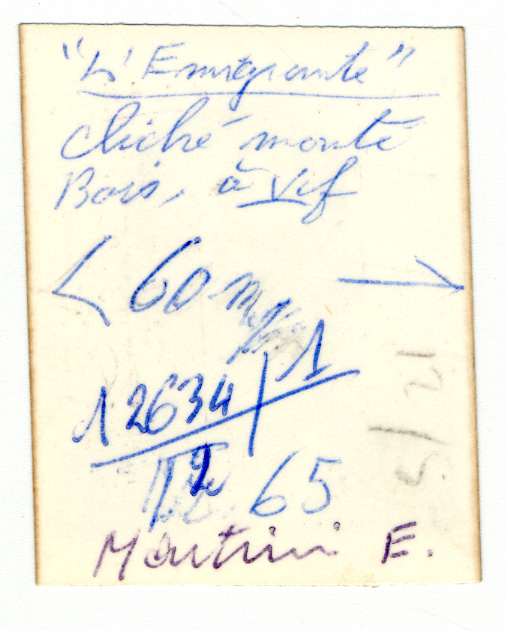 "L'Emigrante"
cliché monté
Bois, à Vif
60 m/m
12634/1
12 65
Martini E.
5/21